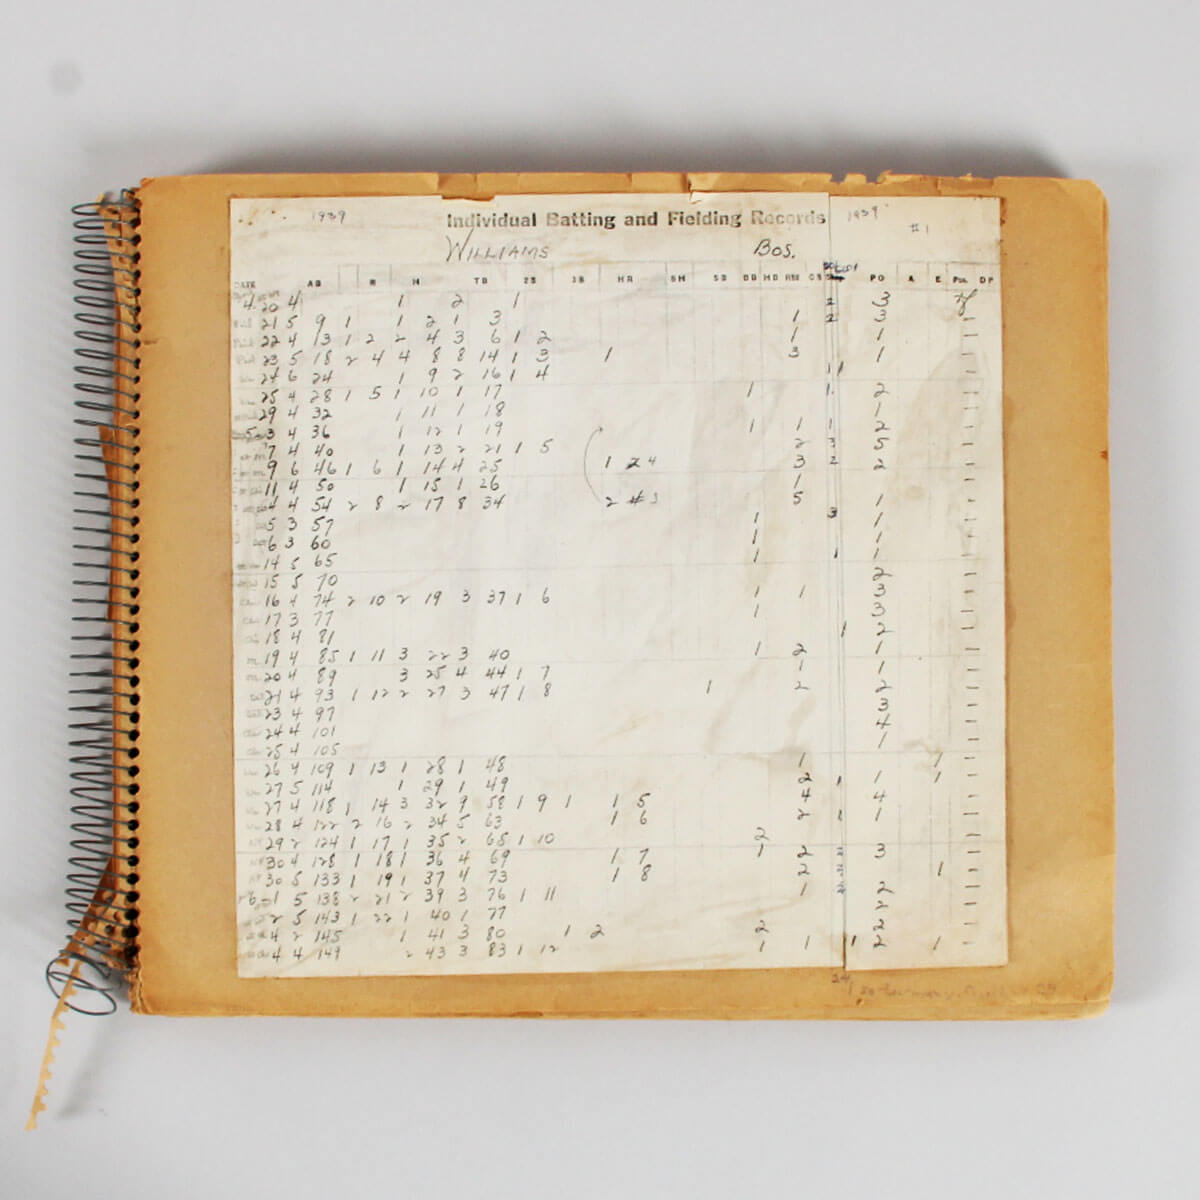 1939 Individual Batting and Fielding Records 1939 #1
WILLIAMS BOS.
DATE AB R H TB 2B 3B HR SH SB BB HB RBI PO A E Pos. DP
4-20 4 1 2 1 2 3
21 5 9 1 1 2 1 3 1 2 3 1
22 4 13 1 2 2 4 3 6 1 2 1 1 1
23 5 18 2 4 4 8 8 14 1 3 1 3 1 1
24 6 24 1 9 2 16 1 4 1 1 1
25 4 28 1 5 1 10 1 17 1 1 2 1
29 4 32 1 11 1 18 1 1
5-3 4 36 1 12 1 19 1 1 1 2 1
7 4 40 1 13 2 21 1 5 2 3 5 1
9 6 46 1 6 1 14 4 25 1 2 4 3 2 2 1
11 4 50 1 15 1 26 1 1
4 4 54 2 8 2 17 8 34 2 3 5 1 1
5 3 57 1 3 1 1
6 3 60 1 1 1
14 5 65 1 1 1 1
15 5 70 2 1
16 4 74 2 10 2 19 3 37 1 6 1 1 3 1
17 3 77 1 3 1
18 4 81 1 2 1
19 4 85 1 11 3 22 3 40 1 2 1 1
20 4 89 3 25 4 44 1 7 1 1 1
21 4 93 1 12 2 27 3 47 1 8 1 2 2 1
23 4 97 3 1
24 4 101 4 1
25 4 105 1 1
26 4 109 1 13 1 28 1 48 1 1 1
27 5 114 1 29 1 49 2 1 1 1 1
27 4 118 1 14 3 32 9 58 1 9 1 1 5 4 4 1
28 4 122 2 16 2 34 5 63 1 6 2 1 1 1
29 2 124 1 17 1 35 2 65 1 10 2 1
30 4 128 1 18 1 36 4 69 1 7 1 2 2 3 1
30 5 133 1 19 1 37 4 73 1 8 2 1 1
6-1 5 138 2 21 2 39 3 76 1 11 1 2 1
2 5 143 1 22 1 40 1 77 2 1
4 2 145 1 41 3 80 1 2 2 2 1
4 4 149 2 43 3 83 1 12 1 1 1 2 1 1
24